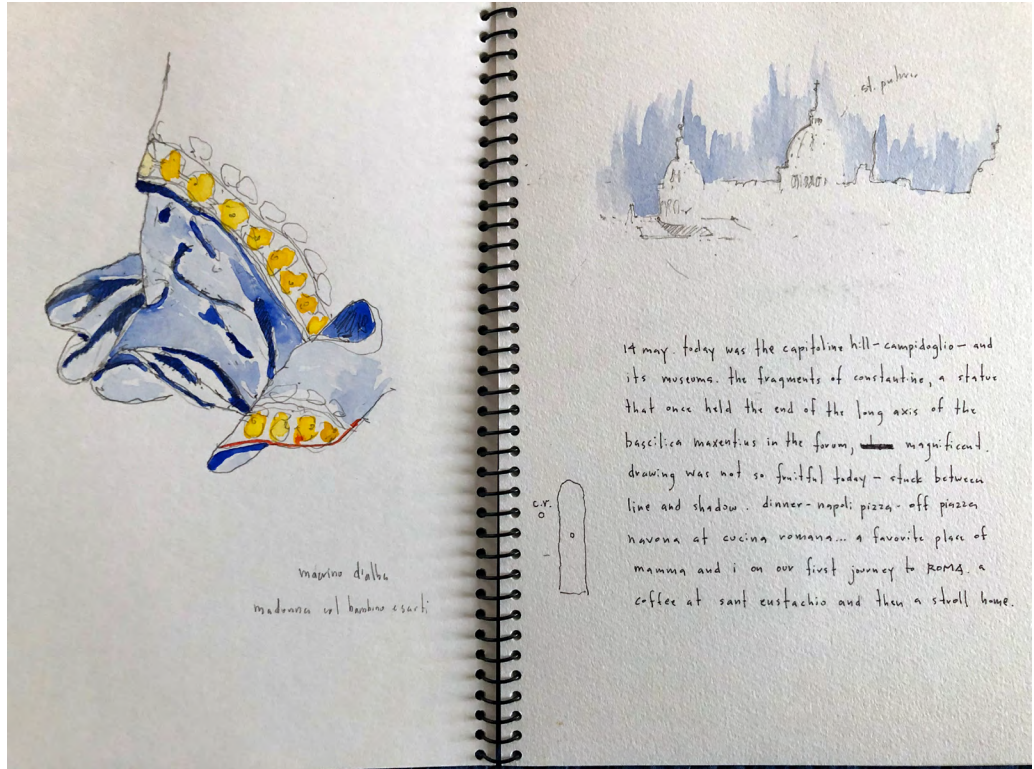 macrino d'alba
madonna col bambino e santi
st. peters
14 may. today was the capitoline hill - campidoglio - and
its museums. the fragments of constantine, a statue
that once held the end of the long axis of the
bascilica maxentius in the forum, magnificent.
drawing was not so fruitful today - stuck between
line and shadow. dinner - napoli pizza - off piazza
navona at cucina romana... a favorite place of
mamma and i on our first journey to ROMA. a
coffee at sant eustachio and then a stroll home.
c.r.